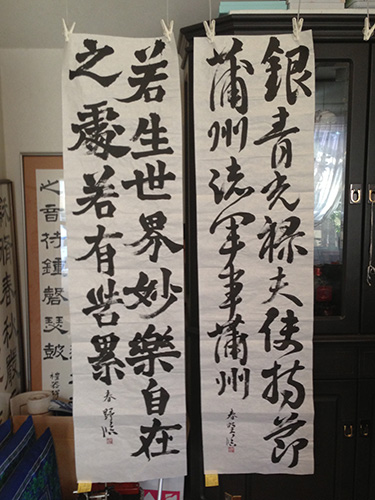 銀青光禄夫使持節
蒲州諸軍事蒲州
春野臨
若生世界妙樂自在
之處若有苦累
春野臨
之音符鍾磬瑟
春秋